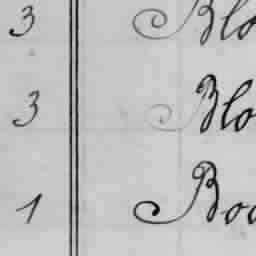 3 Blo
3 Blo
1 Boo